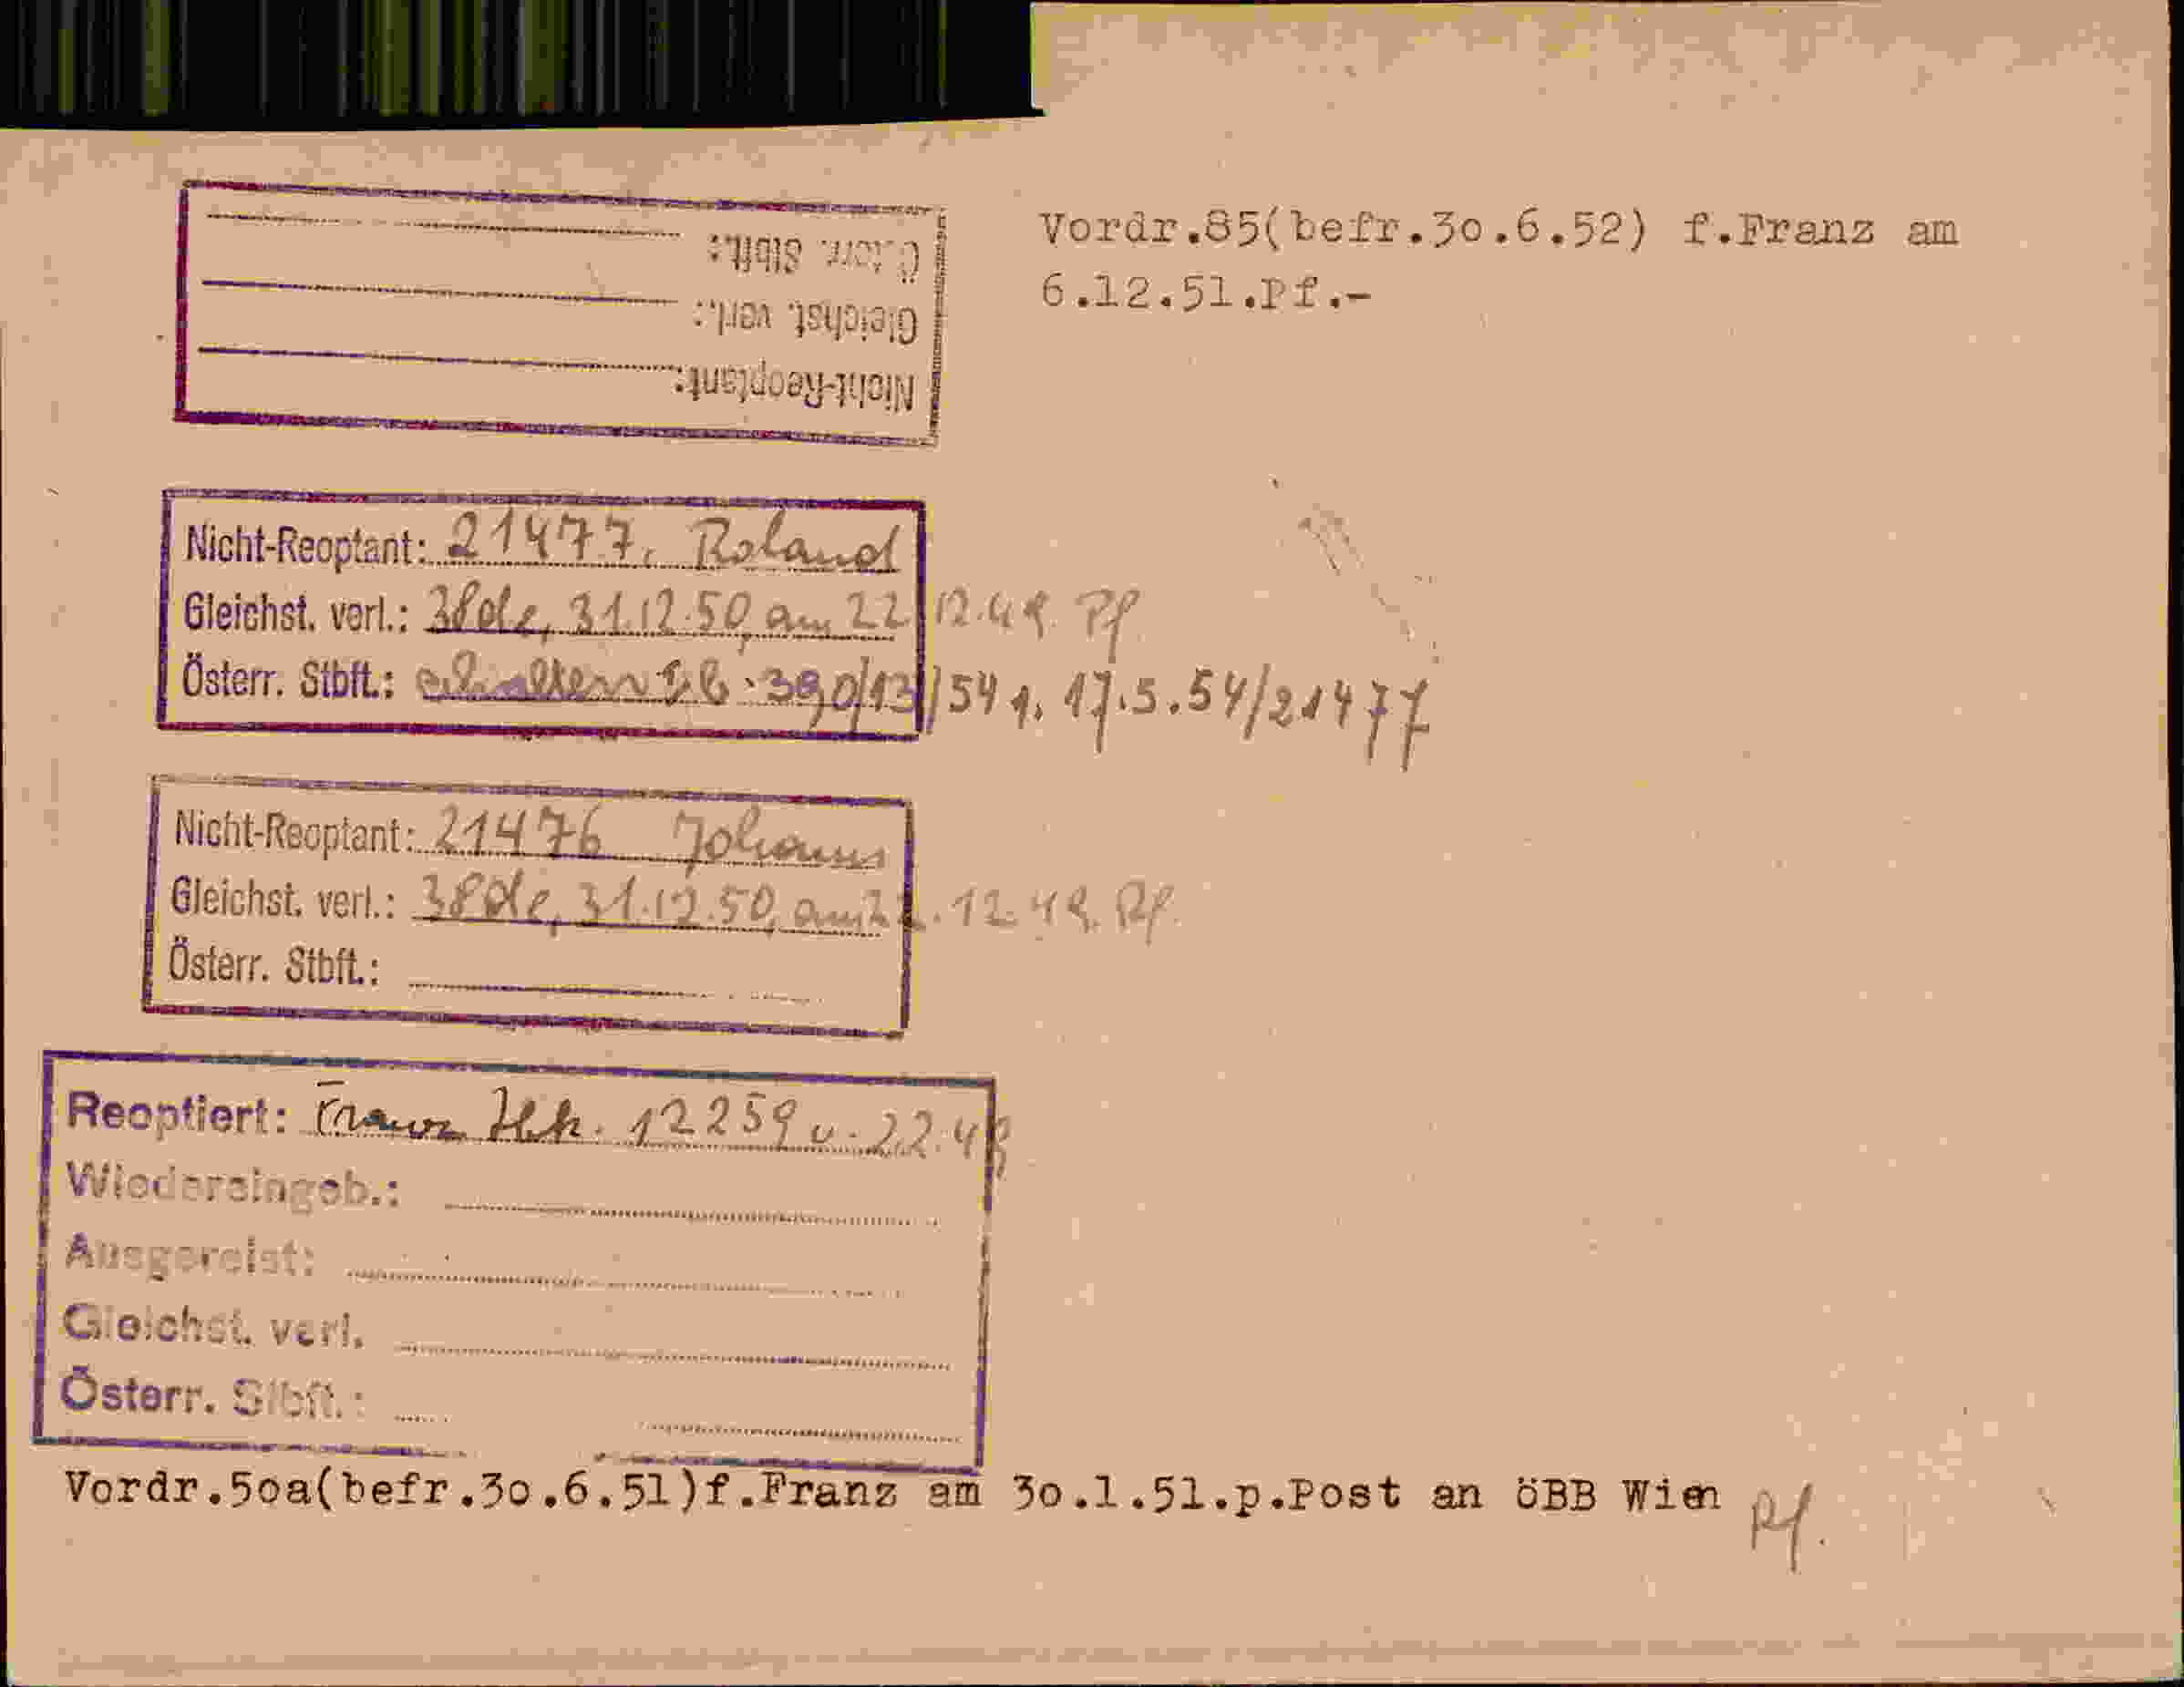 Vordr.85(befr.30.6.52) f.Franz am
6.12.51.Pf.-
Österr. Stbft.:
Gleichst. verl.:
Nicht-Reoptant:
Nicht-Reoptant: 21477, Roland
Gleichst. verl.: 38dl, 31.12.50, am 22.12.49. Pf.
Österr. Stbft.: 54 1. 17.5.54/21477
Nicht-Reoptant: 21476 Johann
Gleichst. verl.: 38dl, 31.12.50, am 22.12.49. Pf.
Österr. Stbft.:
Reoptiert: Franz 12259 v. 2.2.48
Wiedereingeb.:
Ausgereist:
Gleichst. verl.
Österr. Stbft.:
Vordr.50a(befr.30.6.51)f.Franz am 30.1.51.p.Post an öBB Wien Pf.